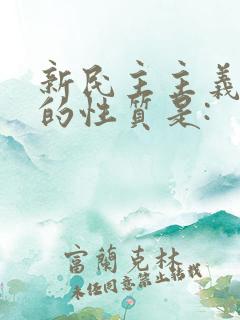 新民主主義
的性質是:
富蘭克林
未经同意禁止转载